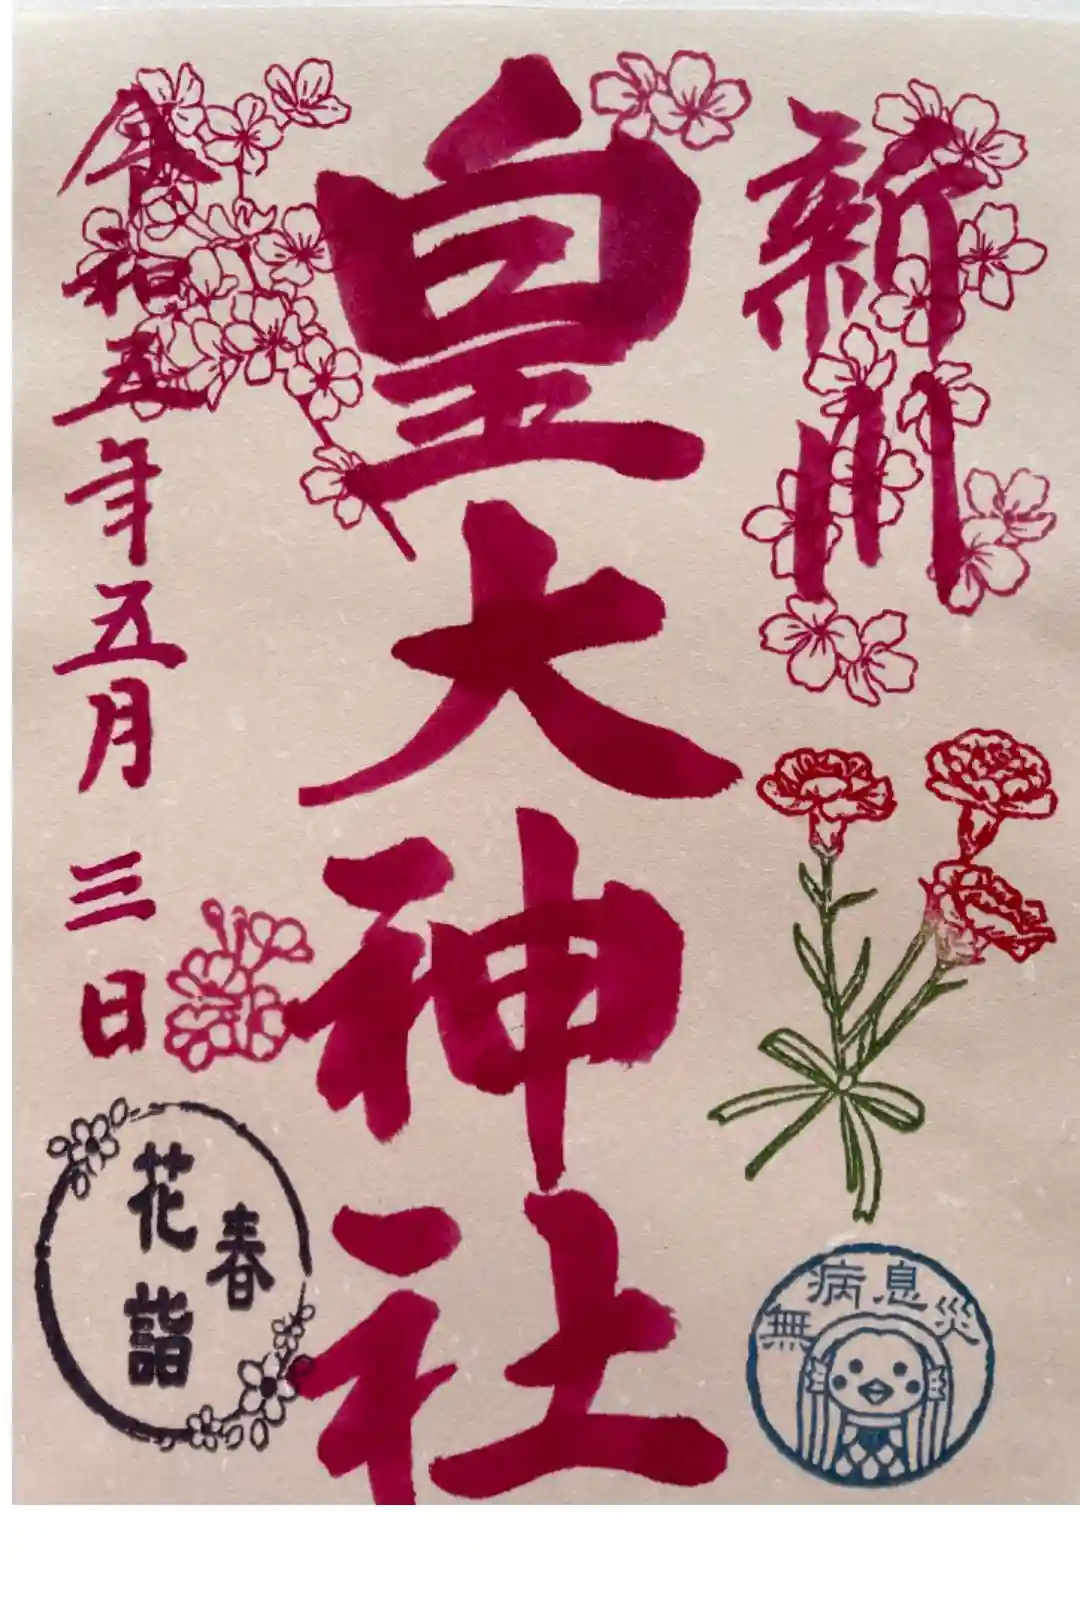 新川
皇大神社
令和五年五月三日
春
花詣
無病息災